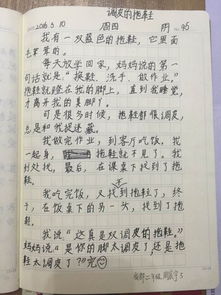 调皮的拖鞋
2016.3.10 周四 阴
我有一双蓝色的拖鞋，它里面
每天放学回家，妈妈说的第一
句话就是“换鞋、洗手、做作业。”
拖鞋就陪在我的脚上，直到我睡觉，
才离开我的臭脚丫。
可是很多时候，拖鞋都很调皮，
总是和我捉迷藏。
我做完作业，到客厅吃饭，我
一起身，拖鞋不见了。我
到处找，最后，在课桌下找到了拖
鞋。
我吃完饭，又找到拖鞋了，终
于，在饭桌下的另一头，找到了拖
鞋。
我说“这真是双调皮的拖鞋。”
妈妈说“是你的脚太调皮了，还是拖
鞋太调皮了？”